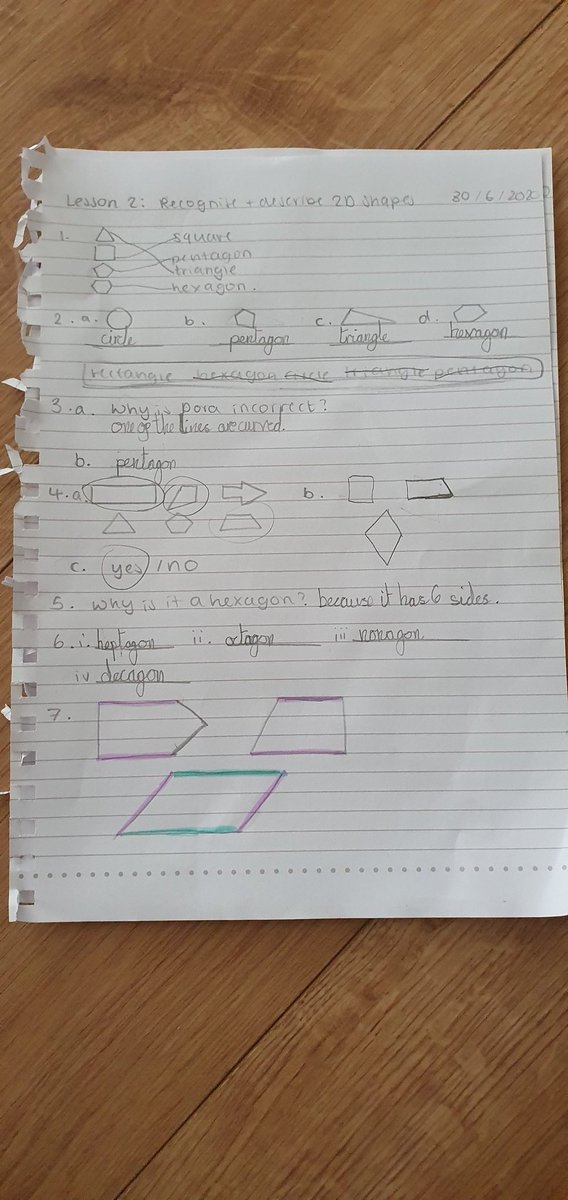 Lesson 2: Recognise + describe 2D shapes 30/6/2020
1. square
pentagon
triangle
hexagon.
2. a. b. c. d.
circle pentagon triangle hexagon
rectangle hexagon circle triangle pentagon
3. a. Why is Dora incorrect?
one of the lines are curved.
b. pentagon
4. a. b.
c. yes / no
5. Why is it a hexagon? because it has 6 sides.
6. i. heptagon ii. octagon iii nonagon
iv decagon
7.